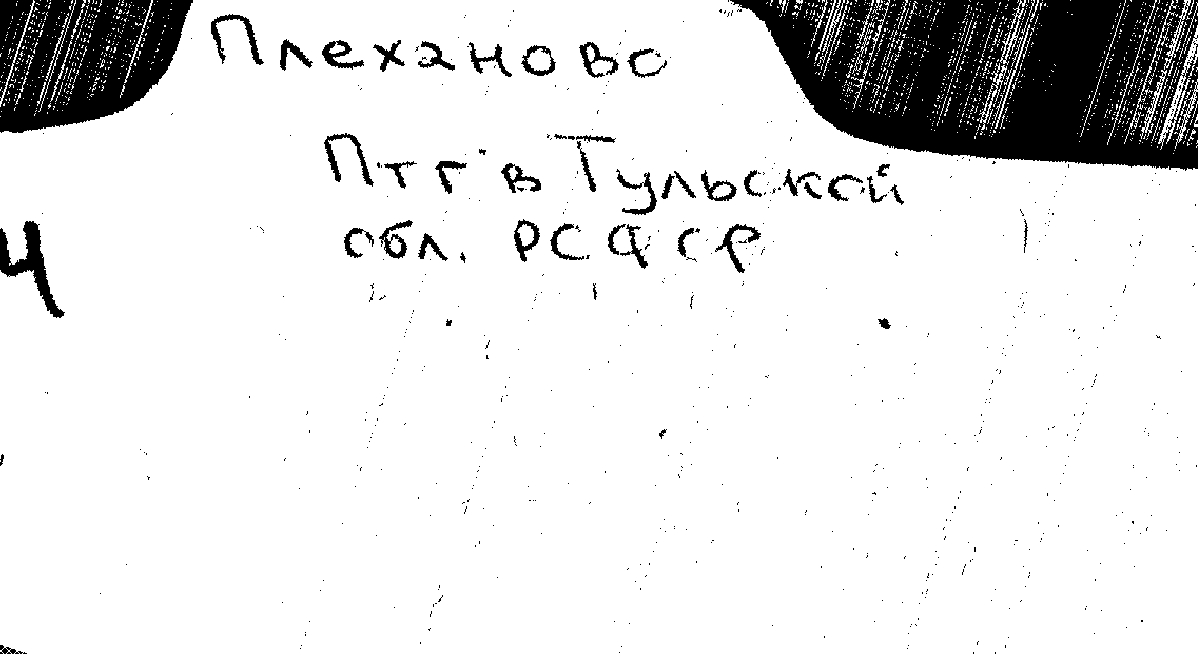 Плеханово
Птг в Тульской
обл. РСФСР